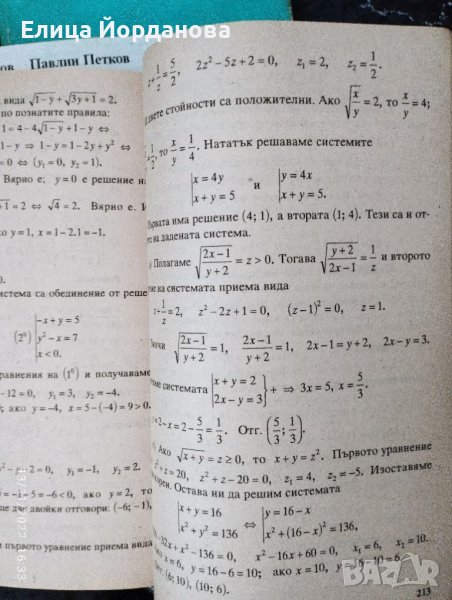 Елица Йорданова
Павлин Петков
вида √(1−y) + √(3y+1) = 2.
по познатите правила:
1 = 4 − 4√(1−y) + 1 − y ⇔
⇒ 1 − y = 1 − 2y + y² ⇔
= 0 ⇔ (y₁ = 0, y₂ = 1).
Вярно е. y = 0 е решение на
+1 = 2 ⇔ √4 = 2. Вярно е. И
ко y = 1, x = 1 − 2.1 = −1.
= 0.
истема са обединение от реше
(2⁰) | −x + y = 5
| y² − x = 7
| x < 0.
равнения на (1⁰) и получаваме
−12 = 0, y₁ = 3, y₂ = −4.
; ако y = −4, x = 5 − (−4) = 9 > 0.
−2 = 0, y₁ = −1, y₂ = 2.
−5 = −6 < 0, ако y = 2, то
е двойки отговори: (−6; −1),
първото уравнение приема вида
z + 1/z = 5/2, 2z² − 5z + 2 = 0, z₁ = 2, z₂ = 1/2.
стойности са положителни. Ако √(x/y) = 2, то x/y = 4;
= 1/2, то x/y = 1/4. Нататък решаваме системите
| x = 4y и | y = 4x
| x + y = 5 | x + y = 5.
Първата има решение (4; 1), а втората (1; 4). Тези са и от-
на дадената система.
Полагаме √((2x−1)/(y+2)) = z > 0. Тогава √((y+2)/(2x−1)) = 1/z и второто
на системата приема вида
z + 1/z = 2, z² − 2z + 1 = 0, (z−1)² = 0, z = 1.
Значи √((2x−1)/(y+2)) = 1, (2x−1)/(y+2) = 1, 2x − 1 = y + 2, 2x − y = 3.
системата | x + y = 2
| 2x − y = 3 } + ⇒ 3x = 5, x = 5/3.
y = 2 − x = 2 − 5/3 = 1/3. Отг. (5/3; 1/3).
Ако √(x+y) = z ≥ 0, то x + y = z². Първото уравнение
z² + z = 20, z² + z − 20 = 0, z₁ = 4, z₂ = −5. Изоставяме
корен. Остава ни да решим системата
| x + y = 16 ⇔ | y = 16 − x
| x² + y² = 136 | x² + (16 − x)² = 136,
−32x + x² − 136 = 0, x² − 16x + 60 = 0, x₁ = 6, x₂ = 10.
x = 6, y = 16 − 6 = 10; ако x = 10, y = 16 − 10 = 6.
Отг. (6; 10), (10; 6).
213
bazar